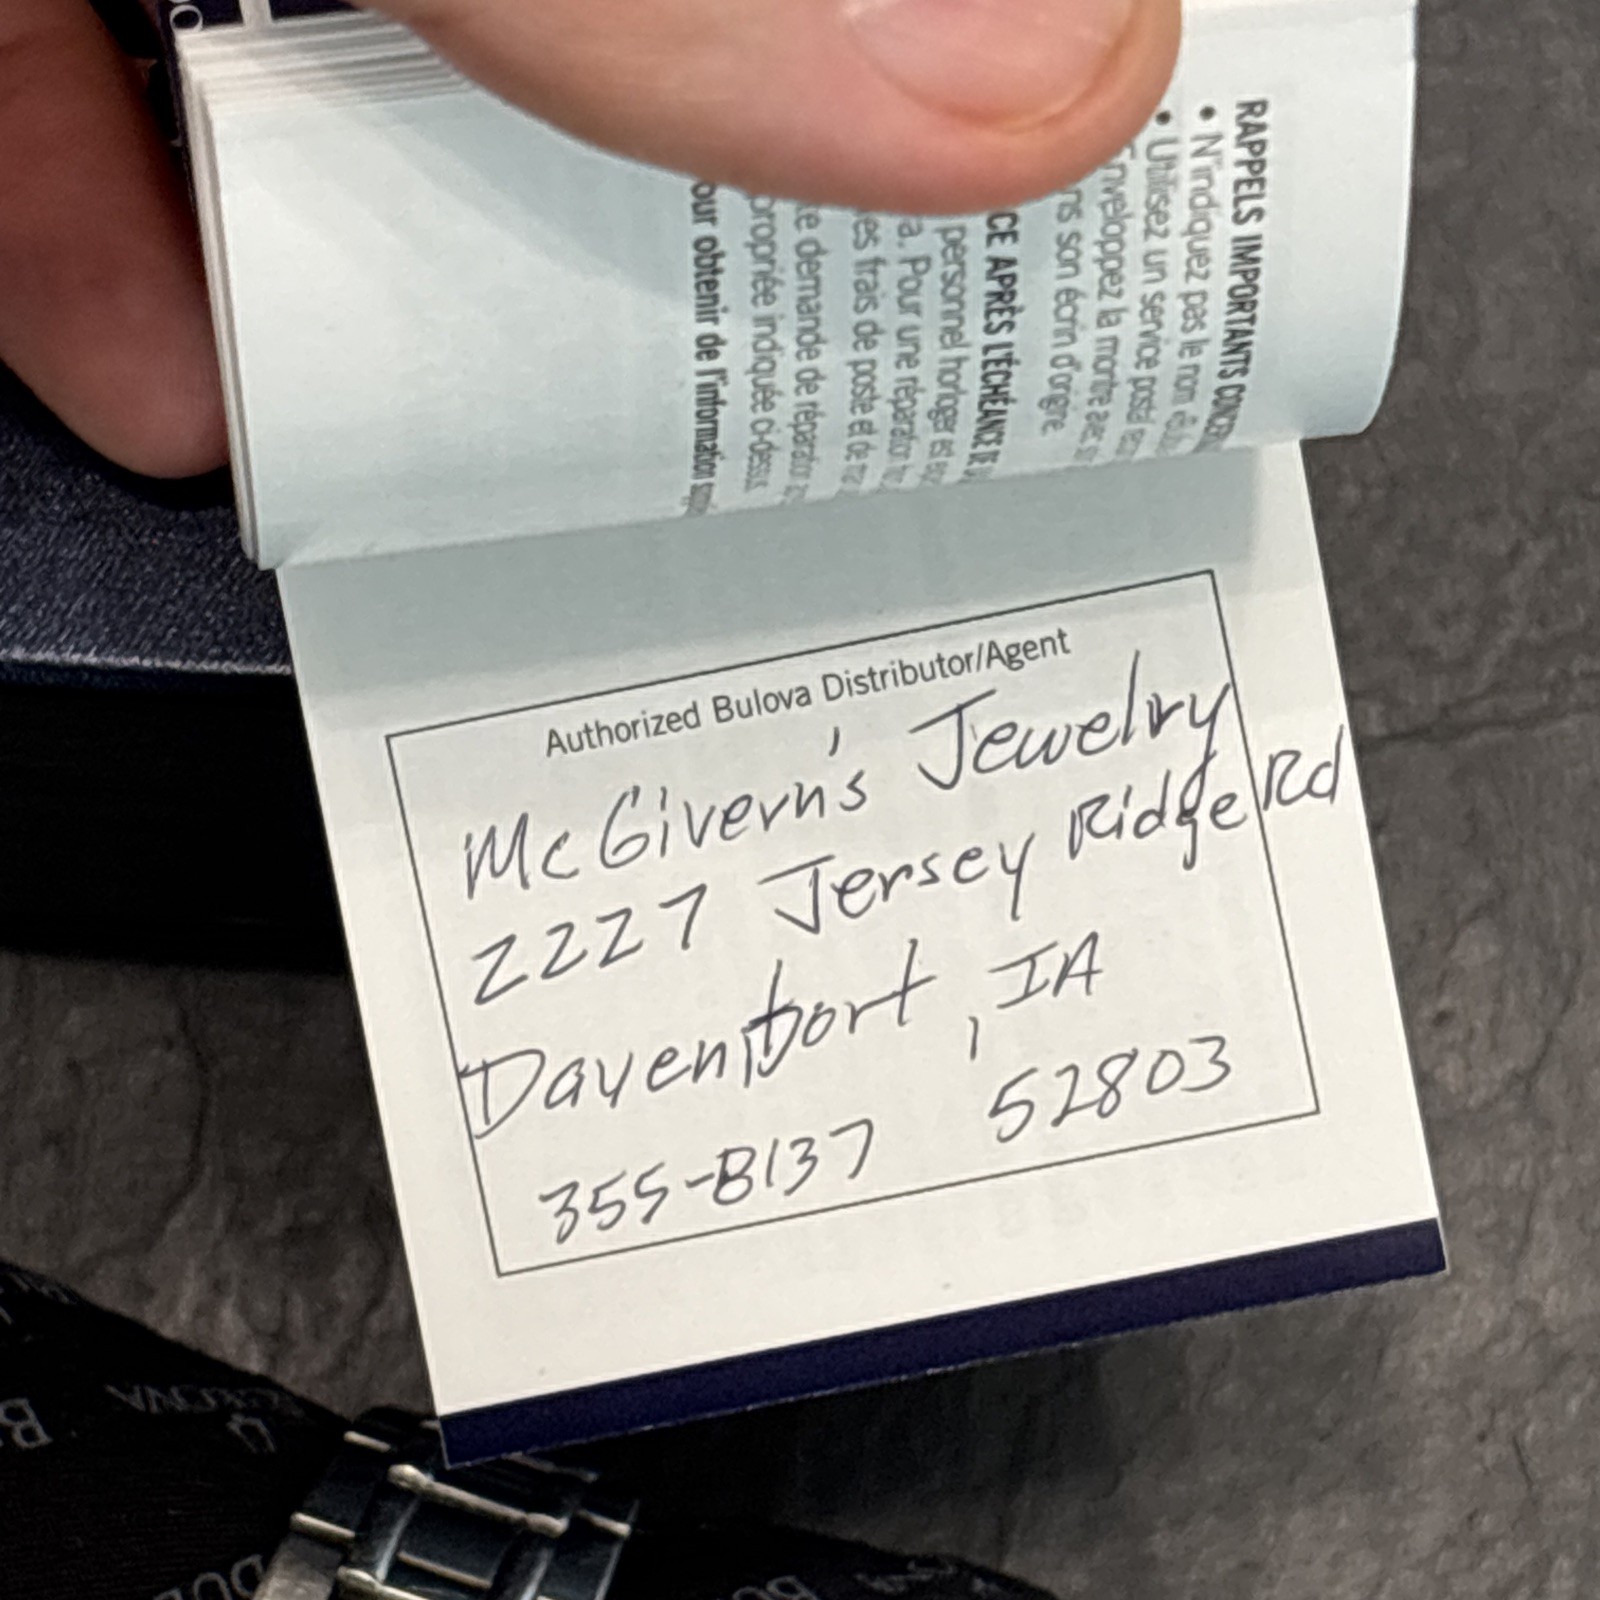 RAPPELS IMPORTANTS
• N'indiquez pas le nom
• Utilisez un service postal
Enveloppez la montre avec
son écrin d'origine.
APRÈS L'ÉCHÉANCE DE
personnel horloger est
a. Pour une réparation
es frais de poste et de
demande de réparation
indiquée ci-dessus.
our obtenir de l'information
Authorized Bulova Distributor/Agent
McGivern's Jewelry
2227 Jersey Ridge Rd
Davenport, IA
52803
355-8137